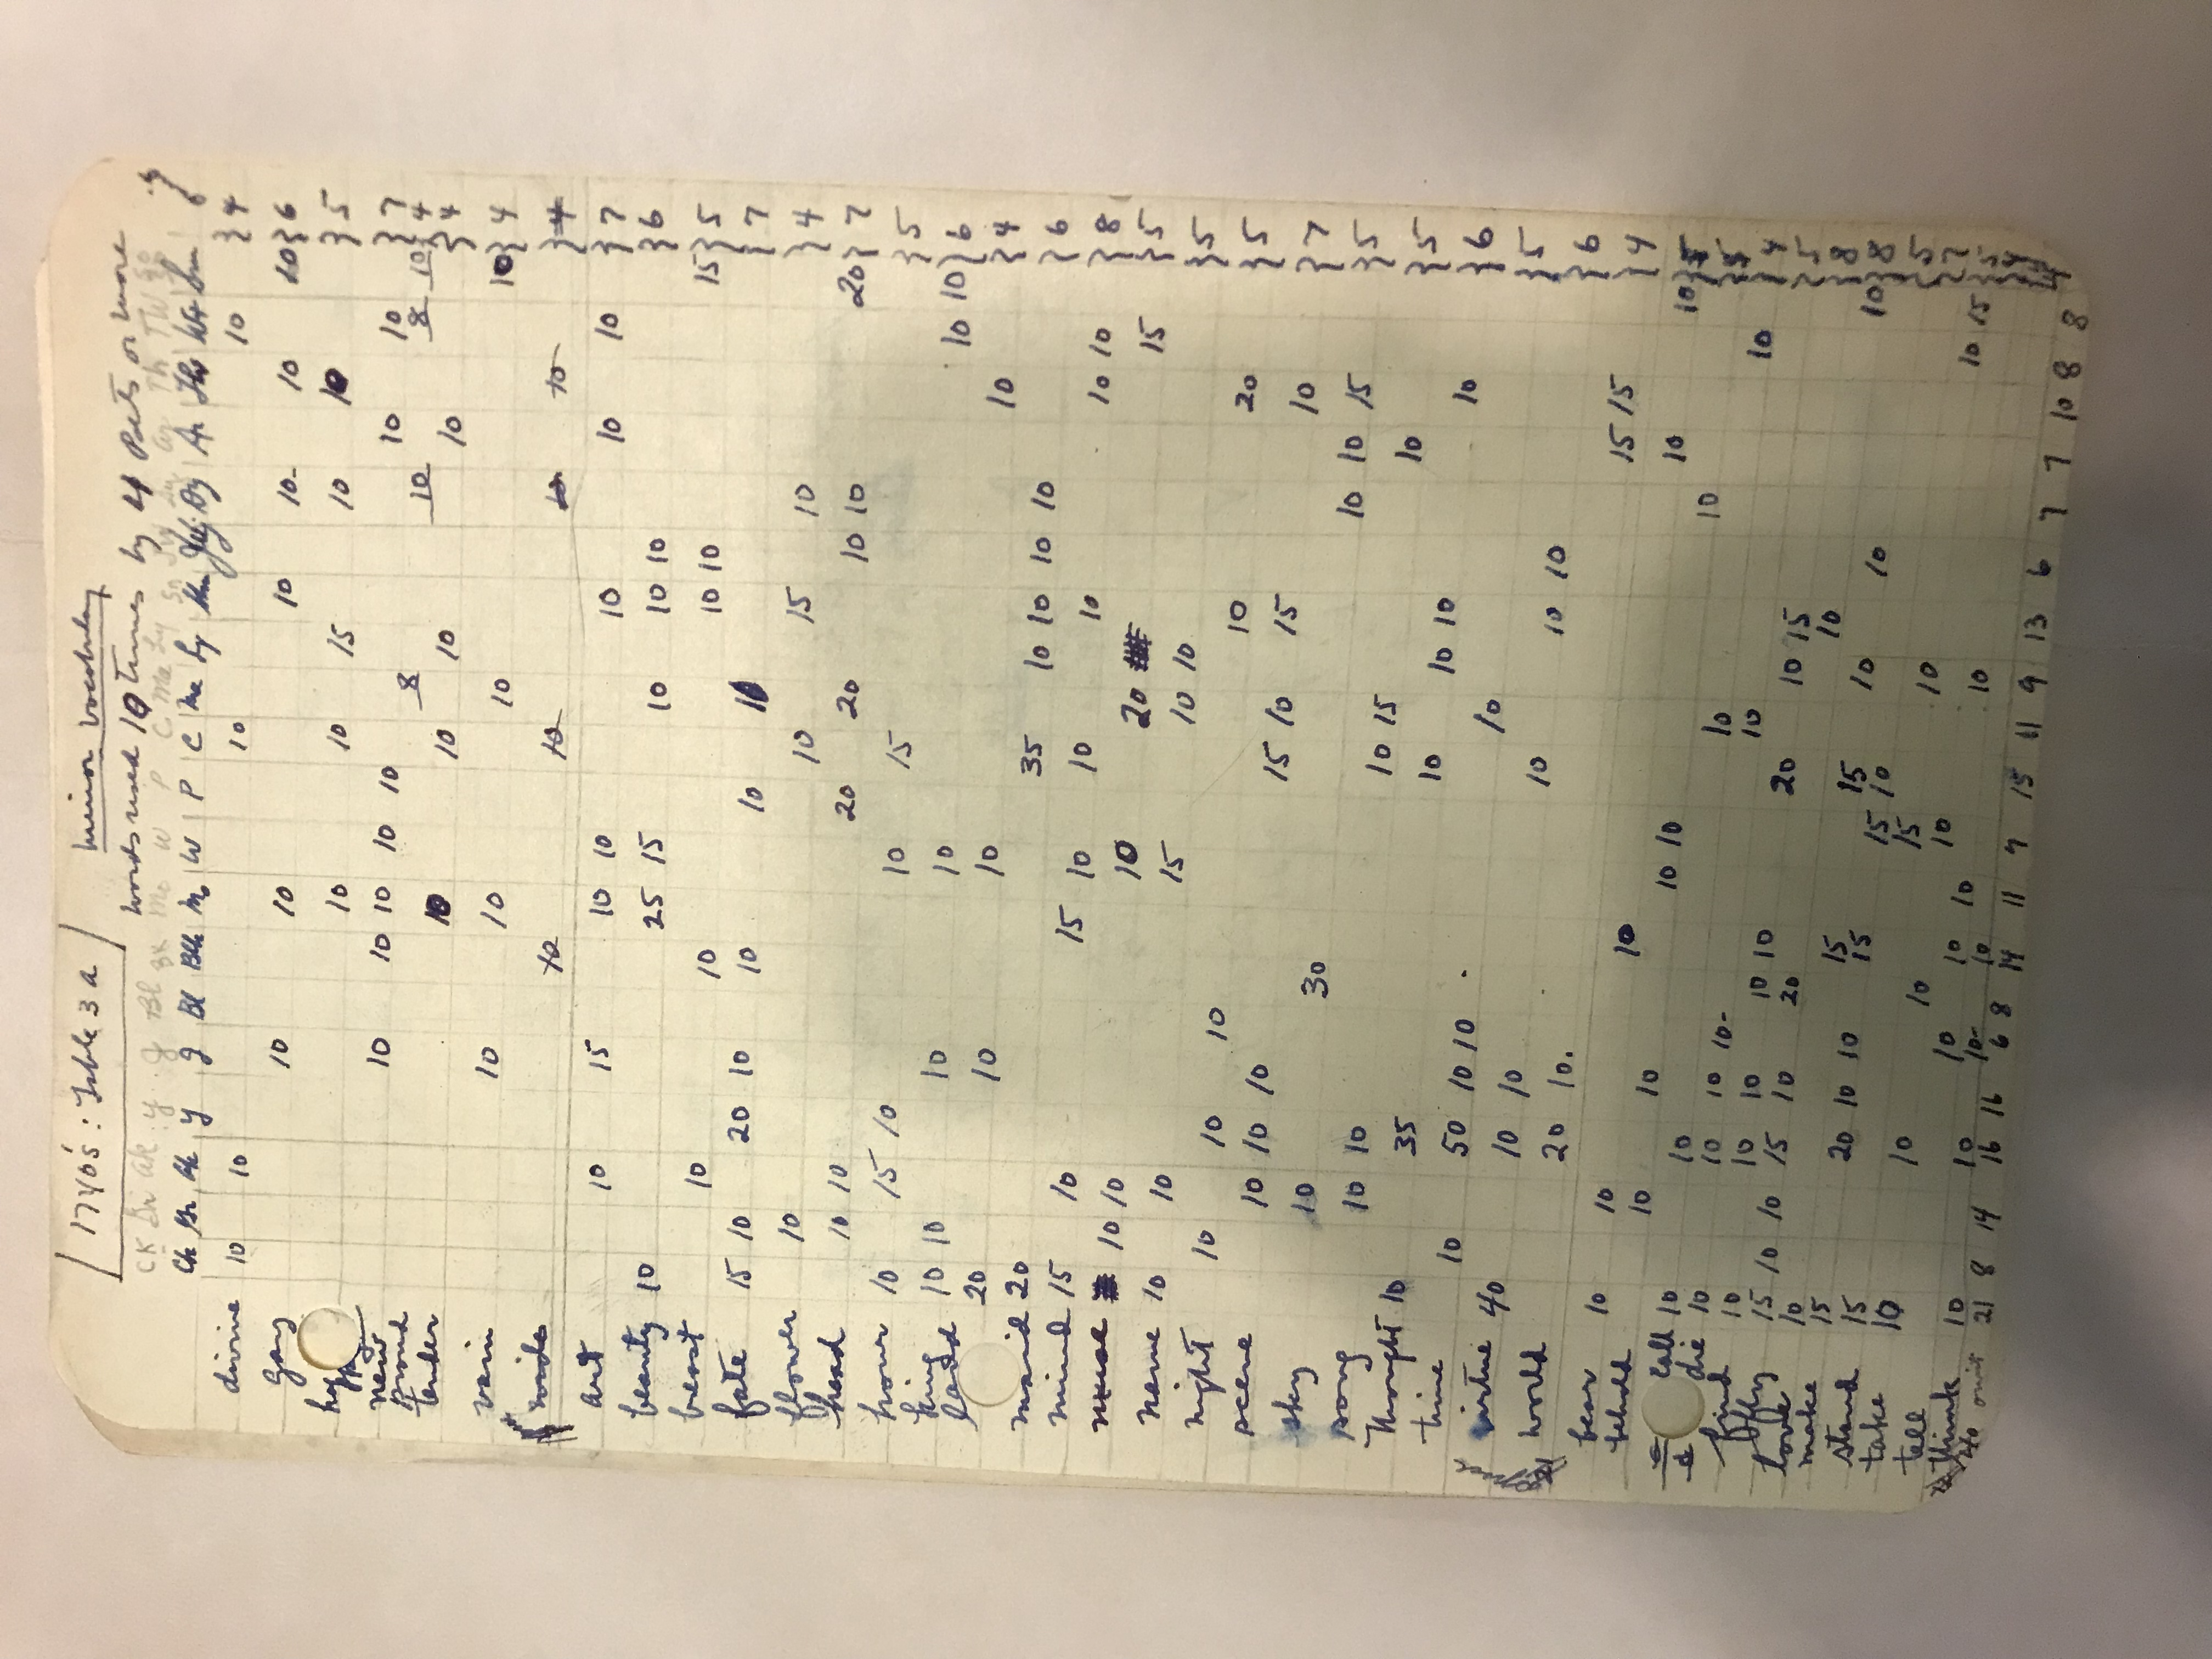 1740's: Table 3a minor vocabulary
words used 10 times by 4 Poets or more
CK Gr Ak Y J Bl BK Mo W P C Ma Ly Sn Dy Ar Th TW
Ck Gr Ak Y J Bl Blk Mo W P C Ma Ly Shn Dy Ar Th Wt Sm
divine 10 10 10 10 } 4
gay 10 10 10 10- 10 10 } 6
happy 10 10 15 10 10 } 5
new 10 10 10 10 10 10 10 7
proud 8 10 8 10 4
tender 10 10 10 10 4
vain 10 10 10 10 } 4
wide 10 10 10 10 } 4
art 10 15 10 10 10 10 10 } 7
beauty 10 25 15 10 10 10 } 6
breast 10 10 10 10 15 } 5
fate 15 10 20 10 10 10 10 7
flower 10 10 15 10 4
head 10 10 20 20 10 10 20 7
hour 10 15 10 10 15 5
king 10 10 10 10 10 10 6
land 20 10 10 10 4
maid 20 35 10 10 10 10 6
mind 15 10 15 10 10 10 10 10 8
muse 10 10 10 20 15 5
name 10 10 15 10 10 5
night 10 10 10 10 20 5
scene 10 10 10 15 10 15 10 7
sky 10 30
song 10 10 10 15 10 10 15
thought 10 35 10 10 10 10
time 10 50 10 10 10 10
virtue 40 10 10 10
world 20 10. 10 10 10
bear 10 10 10 15 15
behold 10 10 10 10 10
call 10 10 10 10
die 10 10 10 10- 10
find 10 10 10 10 10
fly 15 10 10 15 10 10 10
love 10 20 20 10 15
make 15 20 10 10 15 15 10
stand 15 15 15 10 10 10
take 10 10 15
tell 10 10 10 10
think 10 10 10- 10 10 10 15
40 omit 21 8 14 16 16 6 8 14 11 9 15 11 9 13 6 7 7 10 8 8